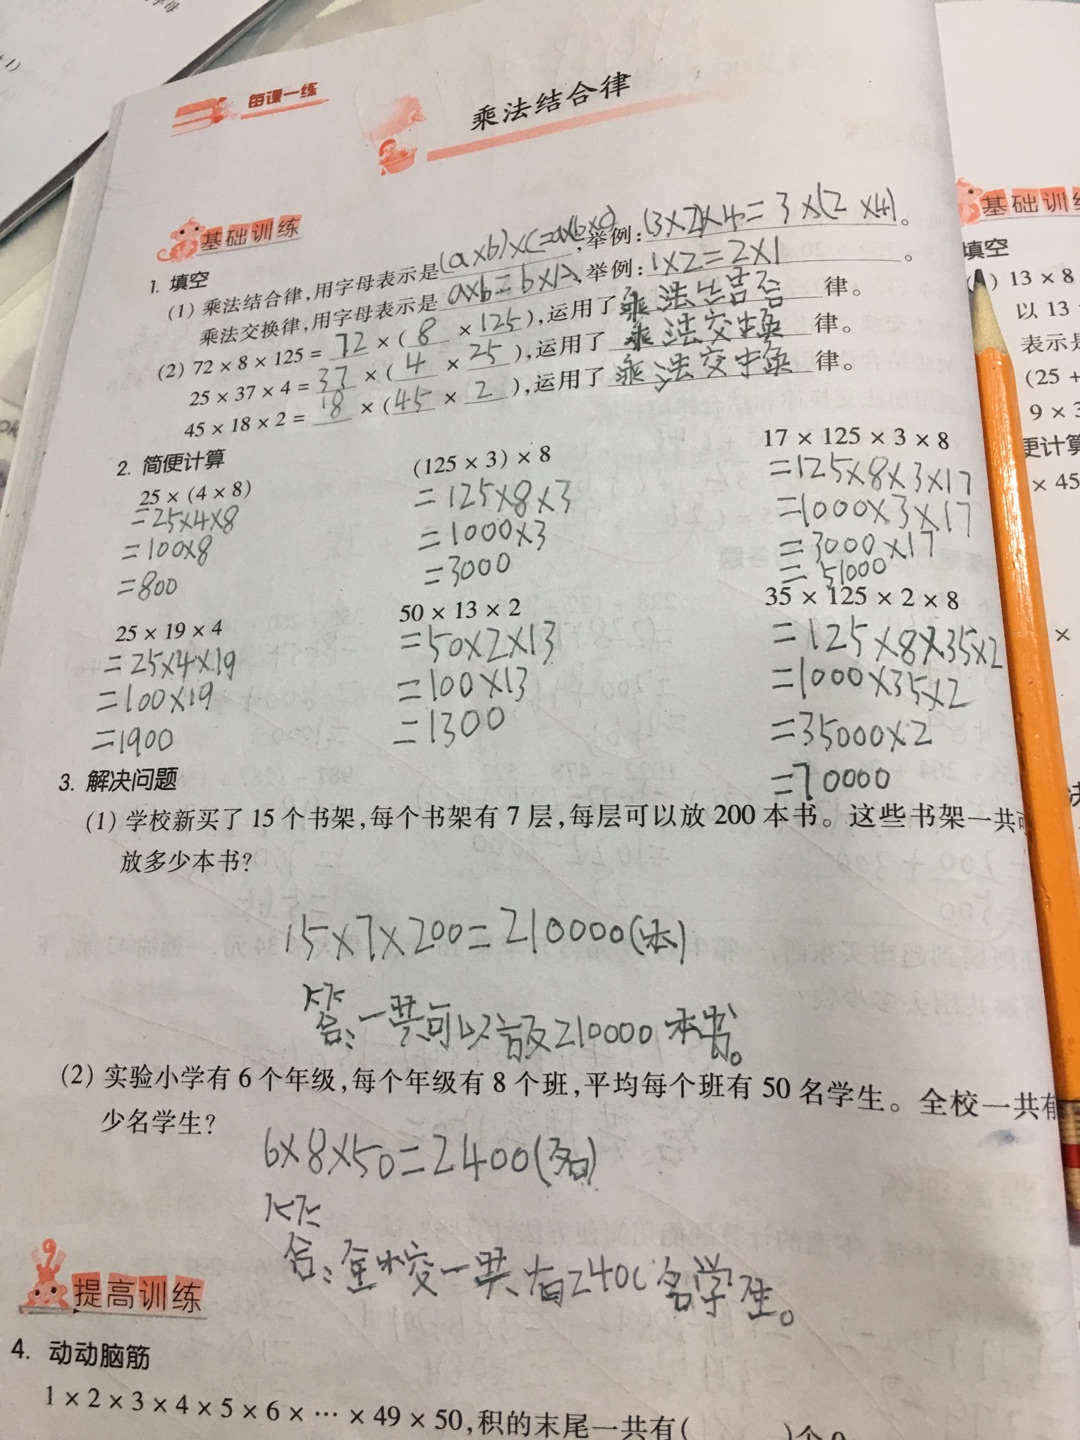 每课一练
乘法结合律
基础训练
1. 填空
(1) 乘法结合律,用字母表示是(a×b)×c=a×(b×c),举例:(3×2)×4=3×(2×4)。
乘法交换律,用字母表示是a×b=b×a,举例:1×2=2×1。
(2) 72×8×125=72×(8×125),运用了乘法结合律。
25×37×4=37×(4×25),运用了乘法交换律。
45×18×2=18×(45×2),运用了乘法交换律。
2. 简便计算
25×(4×8)
=25×4×8
=100×8
=800
(125×3)×8
=125×8×3
=1000×3
=3000
17×125×3×8
=125×8×3×17
=1000×3×17
=3000×17
=51000
25×19×4
=25×4×19
=100×19
=1900
50×13×2
=50×2×13
=100×13
=1300
35×125×2×8
=125×8×35×2
=1000×35×2
=35000×2
=70000
3. 解决问题
(1) 学校新买了15个书架,每个书架有7层,每层可以放200本书。这些书架一共可
放多少本书?
15×7×200=210000(本)
答:一共可以放210000本书。
(2) 实验小学有6个年级,每个年级有8个班,平均每个班有50名学生。全校一共有
少名学生?
6×8×50=2400(名)
答:全校一共有2400名学生。
提高训练
4. 动动脑筋
1×2×3×4×5×6×…×49×50,积的末尾一共有( )个0
基础训练
填空
13×8
以13
表示是
(25+
9×3
便计算
×45